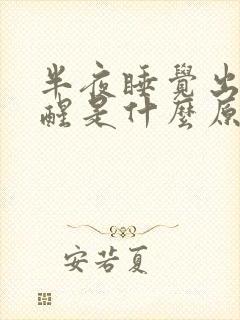 半夜睡覺出
醒是什麼原
安若夏